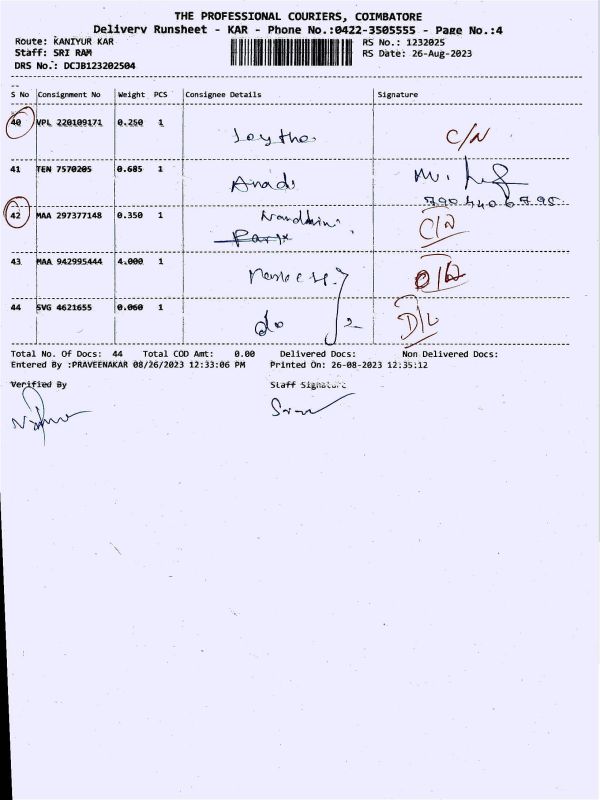 THE PROFESSIONAL COURIERS, COIMBATORE
Delivery Runsheet - KAR - Phone No.:0422-3505555 - Page No.:4
Route: KANIYUR KAR
Staff: SRI RAM
DRS No.: DCJB123202504
RS No.: 1232025
RS Date: 26-Aug-2023
S No Consignment No Weight PCS Consignee Details Signature
40 VPL 220109171 0.250 1 C/N
41 TEN 7570205 0.685 1
42 MAA 297377148 0.350 1
43 MAA 942995444 4.000 1
44 SVG 4621655 0.060 1 do 2 D/L
Total No. Of Docs: 44 Total COD Amt: 0.00 Delivered Docs: Non Delivered Docs:
Entered By :PRAVEENAKAR 08/26/2023 12:33:06 PM Printed On: 26-08-2023 12:35:12
Verified By Staff Signature